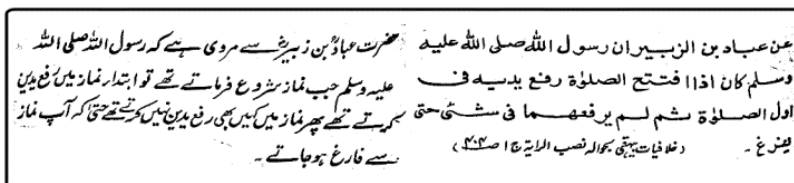 عن عباد بن الزبير ان رسول الله صلى الله عليه
وسلم كان اذا افتتح الصلوٰة رفع يديه فى
اول الصلوٰة ثم لم يرفعهما فى شئى حتى
يفرغ ۔ (خلافیات بیہقی بحوالہ نصب الرایۃ ج۱ ص۴۰۴)
حضرت عبادؓ بن زبیرؓ سے مروی ہے کہ رسول اللہ صلی اللہ
علیہ وسلم جب نماز شروع فرماتے تھے تو ابتدار نماز میں رفع یدین
کرتے تھے پھر نماز میں کہیں بھی رفع یدین نہیں کرتے تھے حتیٰ کہ آپ نماز
سے فارغ ہو جاتے ۔